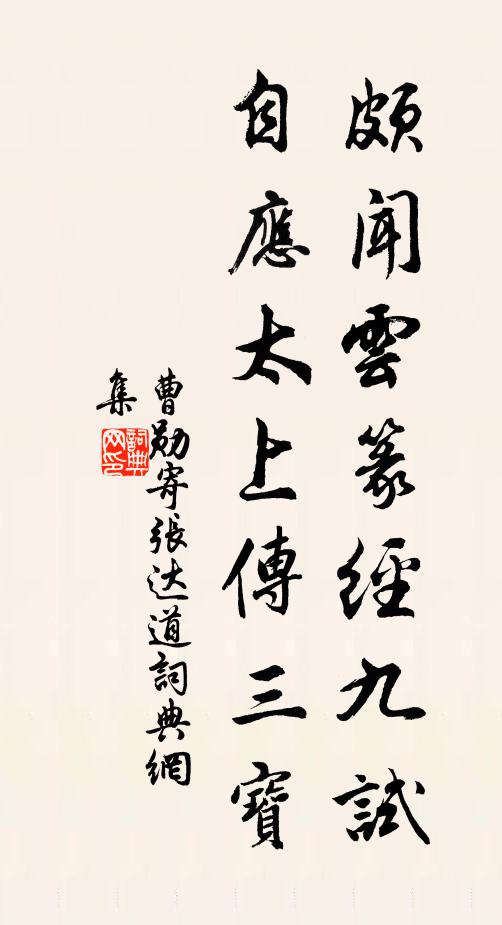 頗聞雲篆經九試
自應太上傳三寶
曹勛寄張达道詞典網
集
詞典
网印